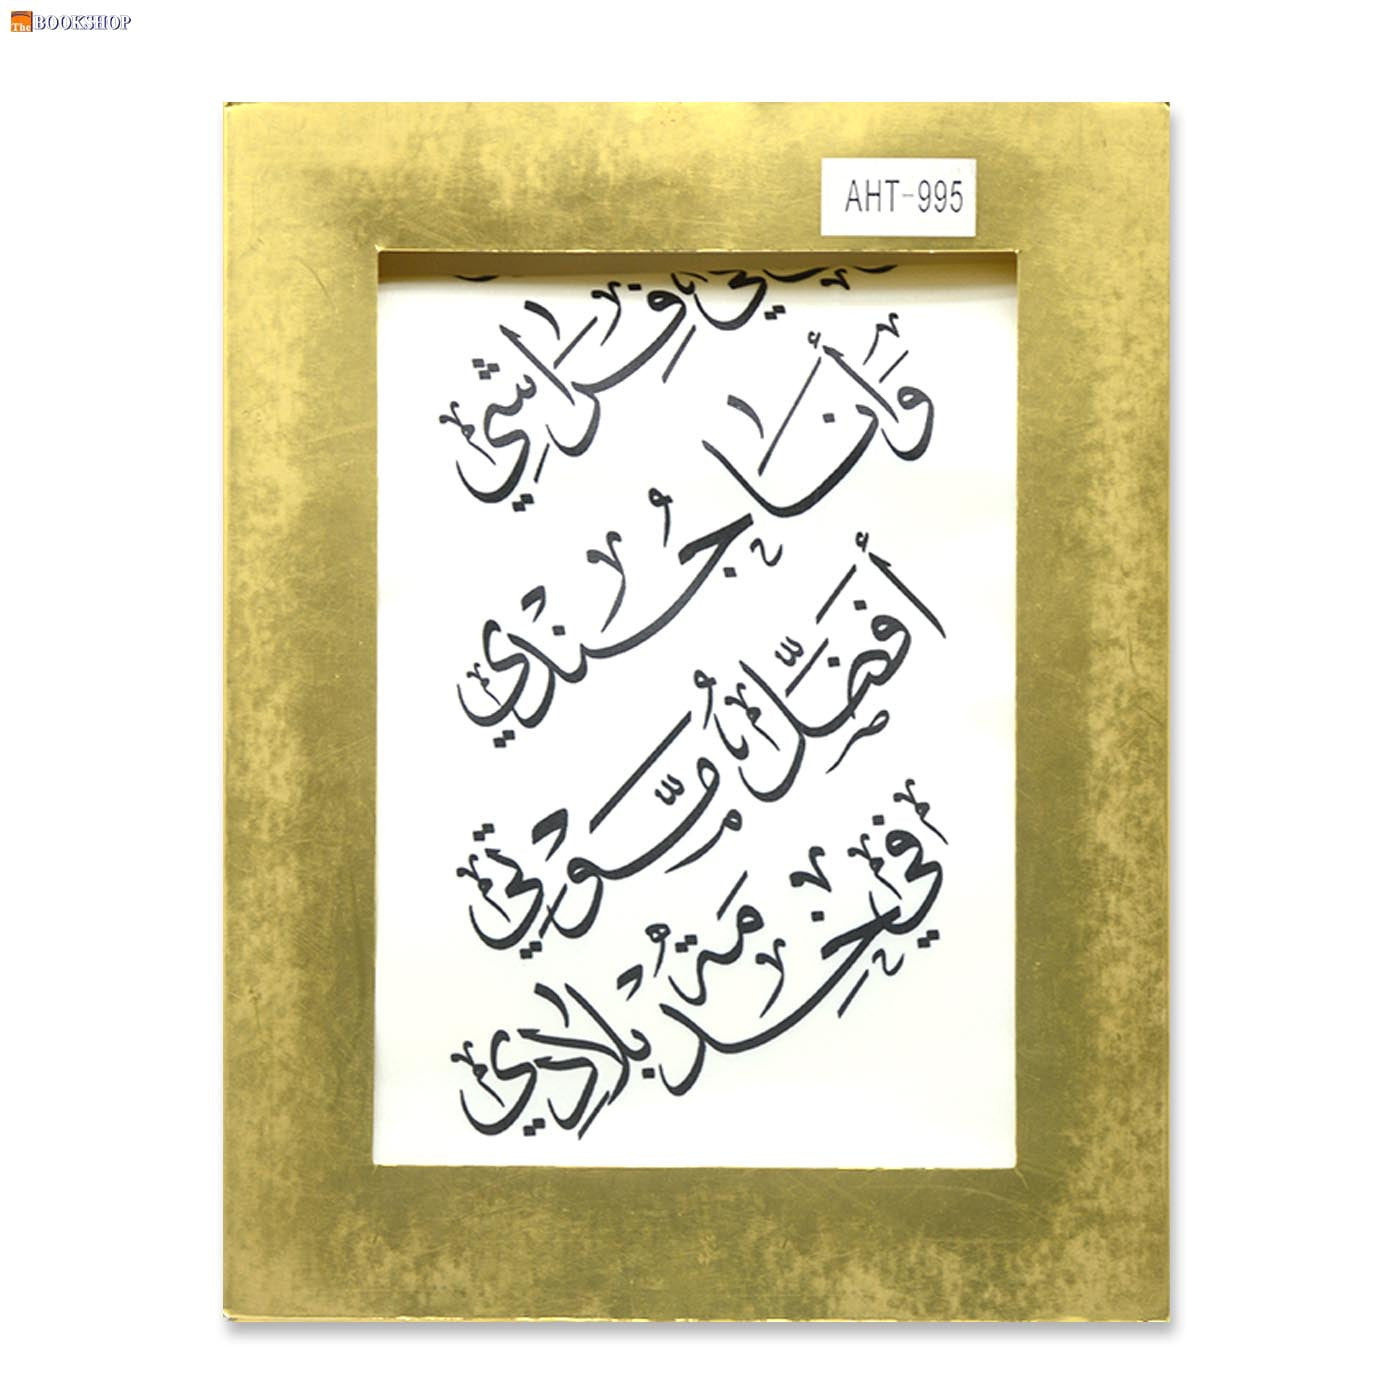 The BOOKSHOP
AHT-995
فِرَاشِي
وَأَنَا جُندي
أفضّلُ موتي
في خدمة بلادِي